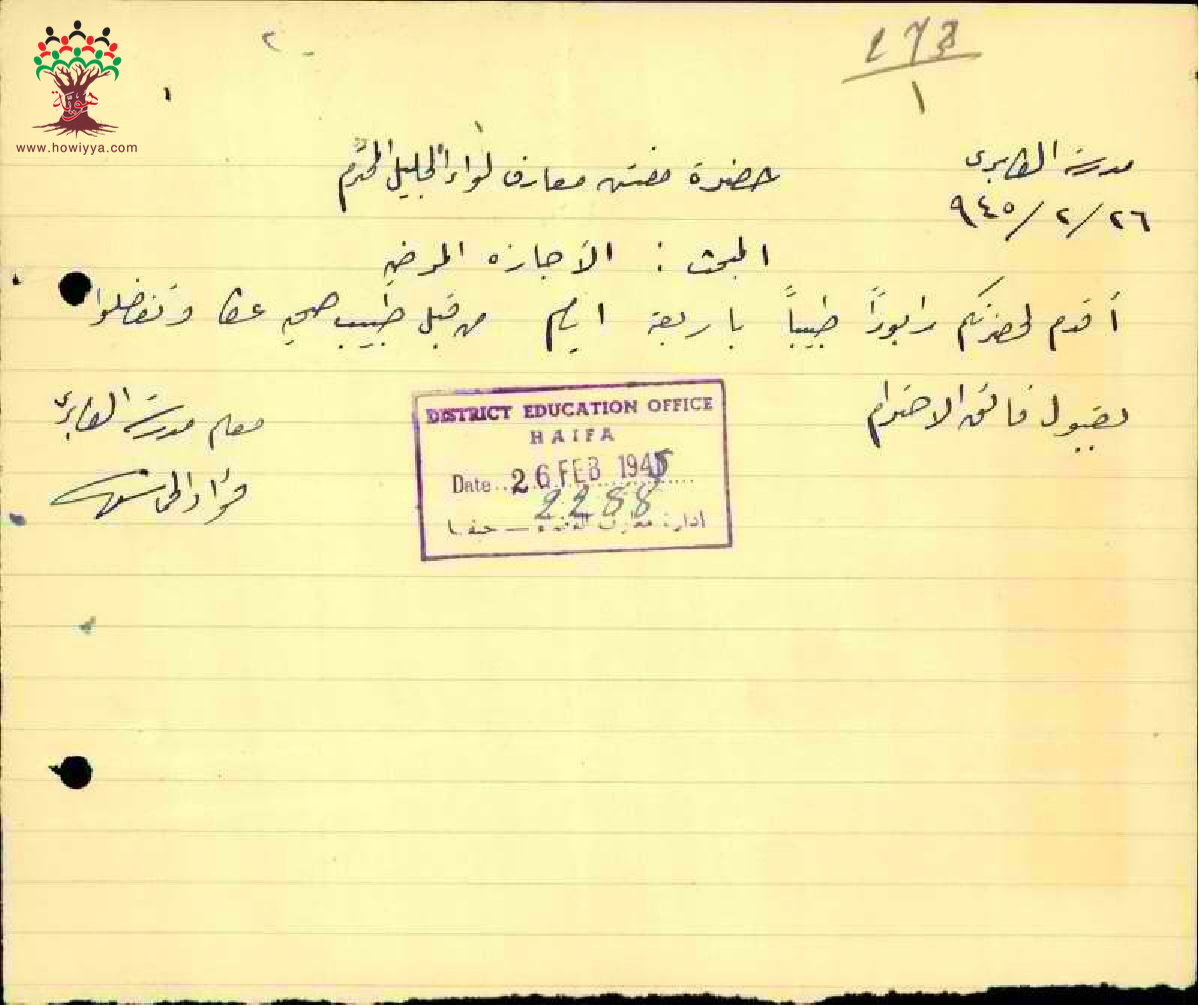 هوية
www.howiyya.com
٢
173
١
مدرسة الكابري
٢٦/٢/٩٤٥
حضرة مفتش معارف لواء الجليل المحترم
المبحث : الاجازه المرضيه
أقدم لحضرتكم رابوراً طبياً باربعة ايام من قبل طبيب صحي عكا وتفضلوا
بقبول فائق الاحترام
معلم مدرسة الكابري
فؤاد
DISTRICT EDUCATION OFFICE
HAIFA
Date 26 FEB 1945
2288
ادارة معارف حيفا